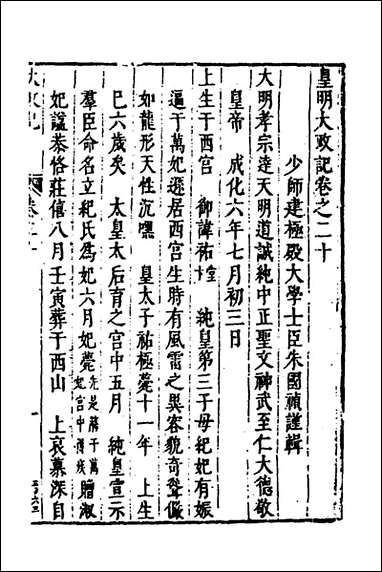 皇明大政記卷之二十
少師建極殿大學士臣朱國禎謹輯
大明孝宗達天明道誠純中正聖文神武至仁大德敬
皇帝 成化六年七月初三日
上生于西宮 御諱祐樘 純皇第三子母紀妃有娠
逼于萬妃遜居西宮生時有風雷之異容貌奇聳儼
如龍形天性沉嘿 皇太子祐極薨十一年 上生
已六歲矣 太皇太后育之宮中五月 純皇宣示
羣臣命名立紀氏為妃六月妃薨先是薛于萬妃宮中得疾贈淑
妃諡恭恪莊僖八月壬寅葬于西山 上哀慕深自
大政記
卷二十
一